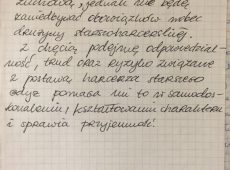 zuchową, jednak nie będę
zaniedbywać obowiązków wobec
drużyny starszoharcerskiej.
Z chęcią podejmę odpowiedzial-
ność, trud oraz ryzyko związane
z postawą harcerza starszego
gdyż pomaga mi to w samodos-
konaleniu, kształtowaniu charakteru
i sprawia przyjemność!